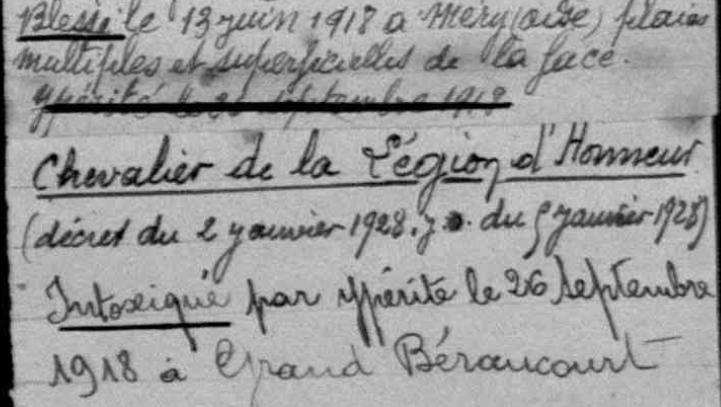 Blessé le 13 juin 1918 à Méry (oise) plaies
multiples et superficielles de la face.
Ypérité le 26 septembre 1918
Chevalier de la Légion d'Honneur
(décret du 2 janvier 1928. J.O. du 5 janvier 1928)
Intoxiqué par ypérite le 26 septembre
1918 à Grand Béraucourt